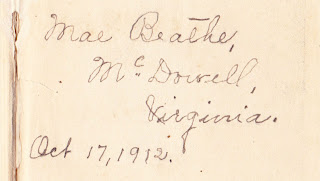 Mae Beathe,
McDowell,
Virginia.
Oct 17, 1912.